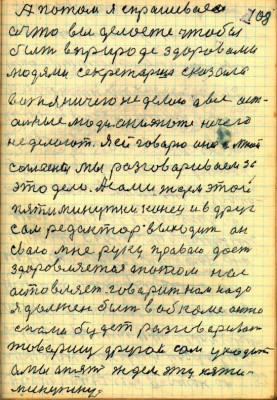 А потом я спрашиваю 108
а что вы делаете чтобы
быт в природе здоровами
людями секретариа сказала
вот я ничего не делаю а вот ост-
алные люди. они тоже ничего
не делают. Я ей говарю она с мной
согласна мы разговариваем за
это дело. А сами ждем этой
пятиминутки конец и в друг
сам редактор выходит он
свою мне руку праваю дает
здоровляется а потом нас
аставляет. говарит нам надо
я должен быт в обкоме а што
с вами будет разговариват
товарищ другой сам уходит
а мы опят ждем эту пяти-
минутку.